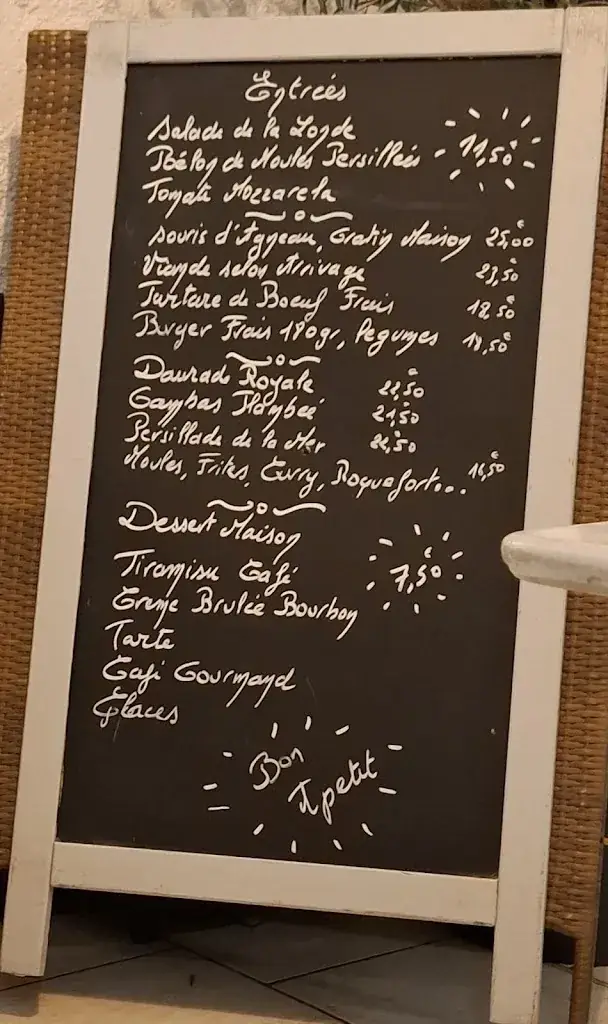 Entrées
Salade de la Londe
Bélon de Moules Persillées 11,50€
Tomate Mozzarela
Souris d'Agneau, Gratin Maison 25,00€
Viande selon Arrivage 23,50€
Tartare de Boeuf Frais 18,50€
Burger Frais 180gr, Legumes 18,50€
Daurade Royale 22,50€
Gambas Flambée 21,50€
Persillade de la Mer 22,50€
Moules, Frites, Curry, Roquefort... 16,50€
Dessert Maison
Tiramisu Café 7,50€
Creme Brulée Bourbon
Tarte
Café Gourmand
Glaces
Bon
Apetit